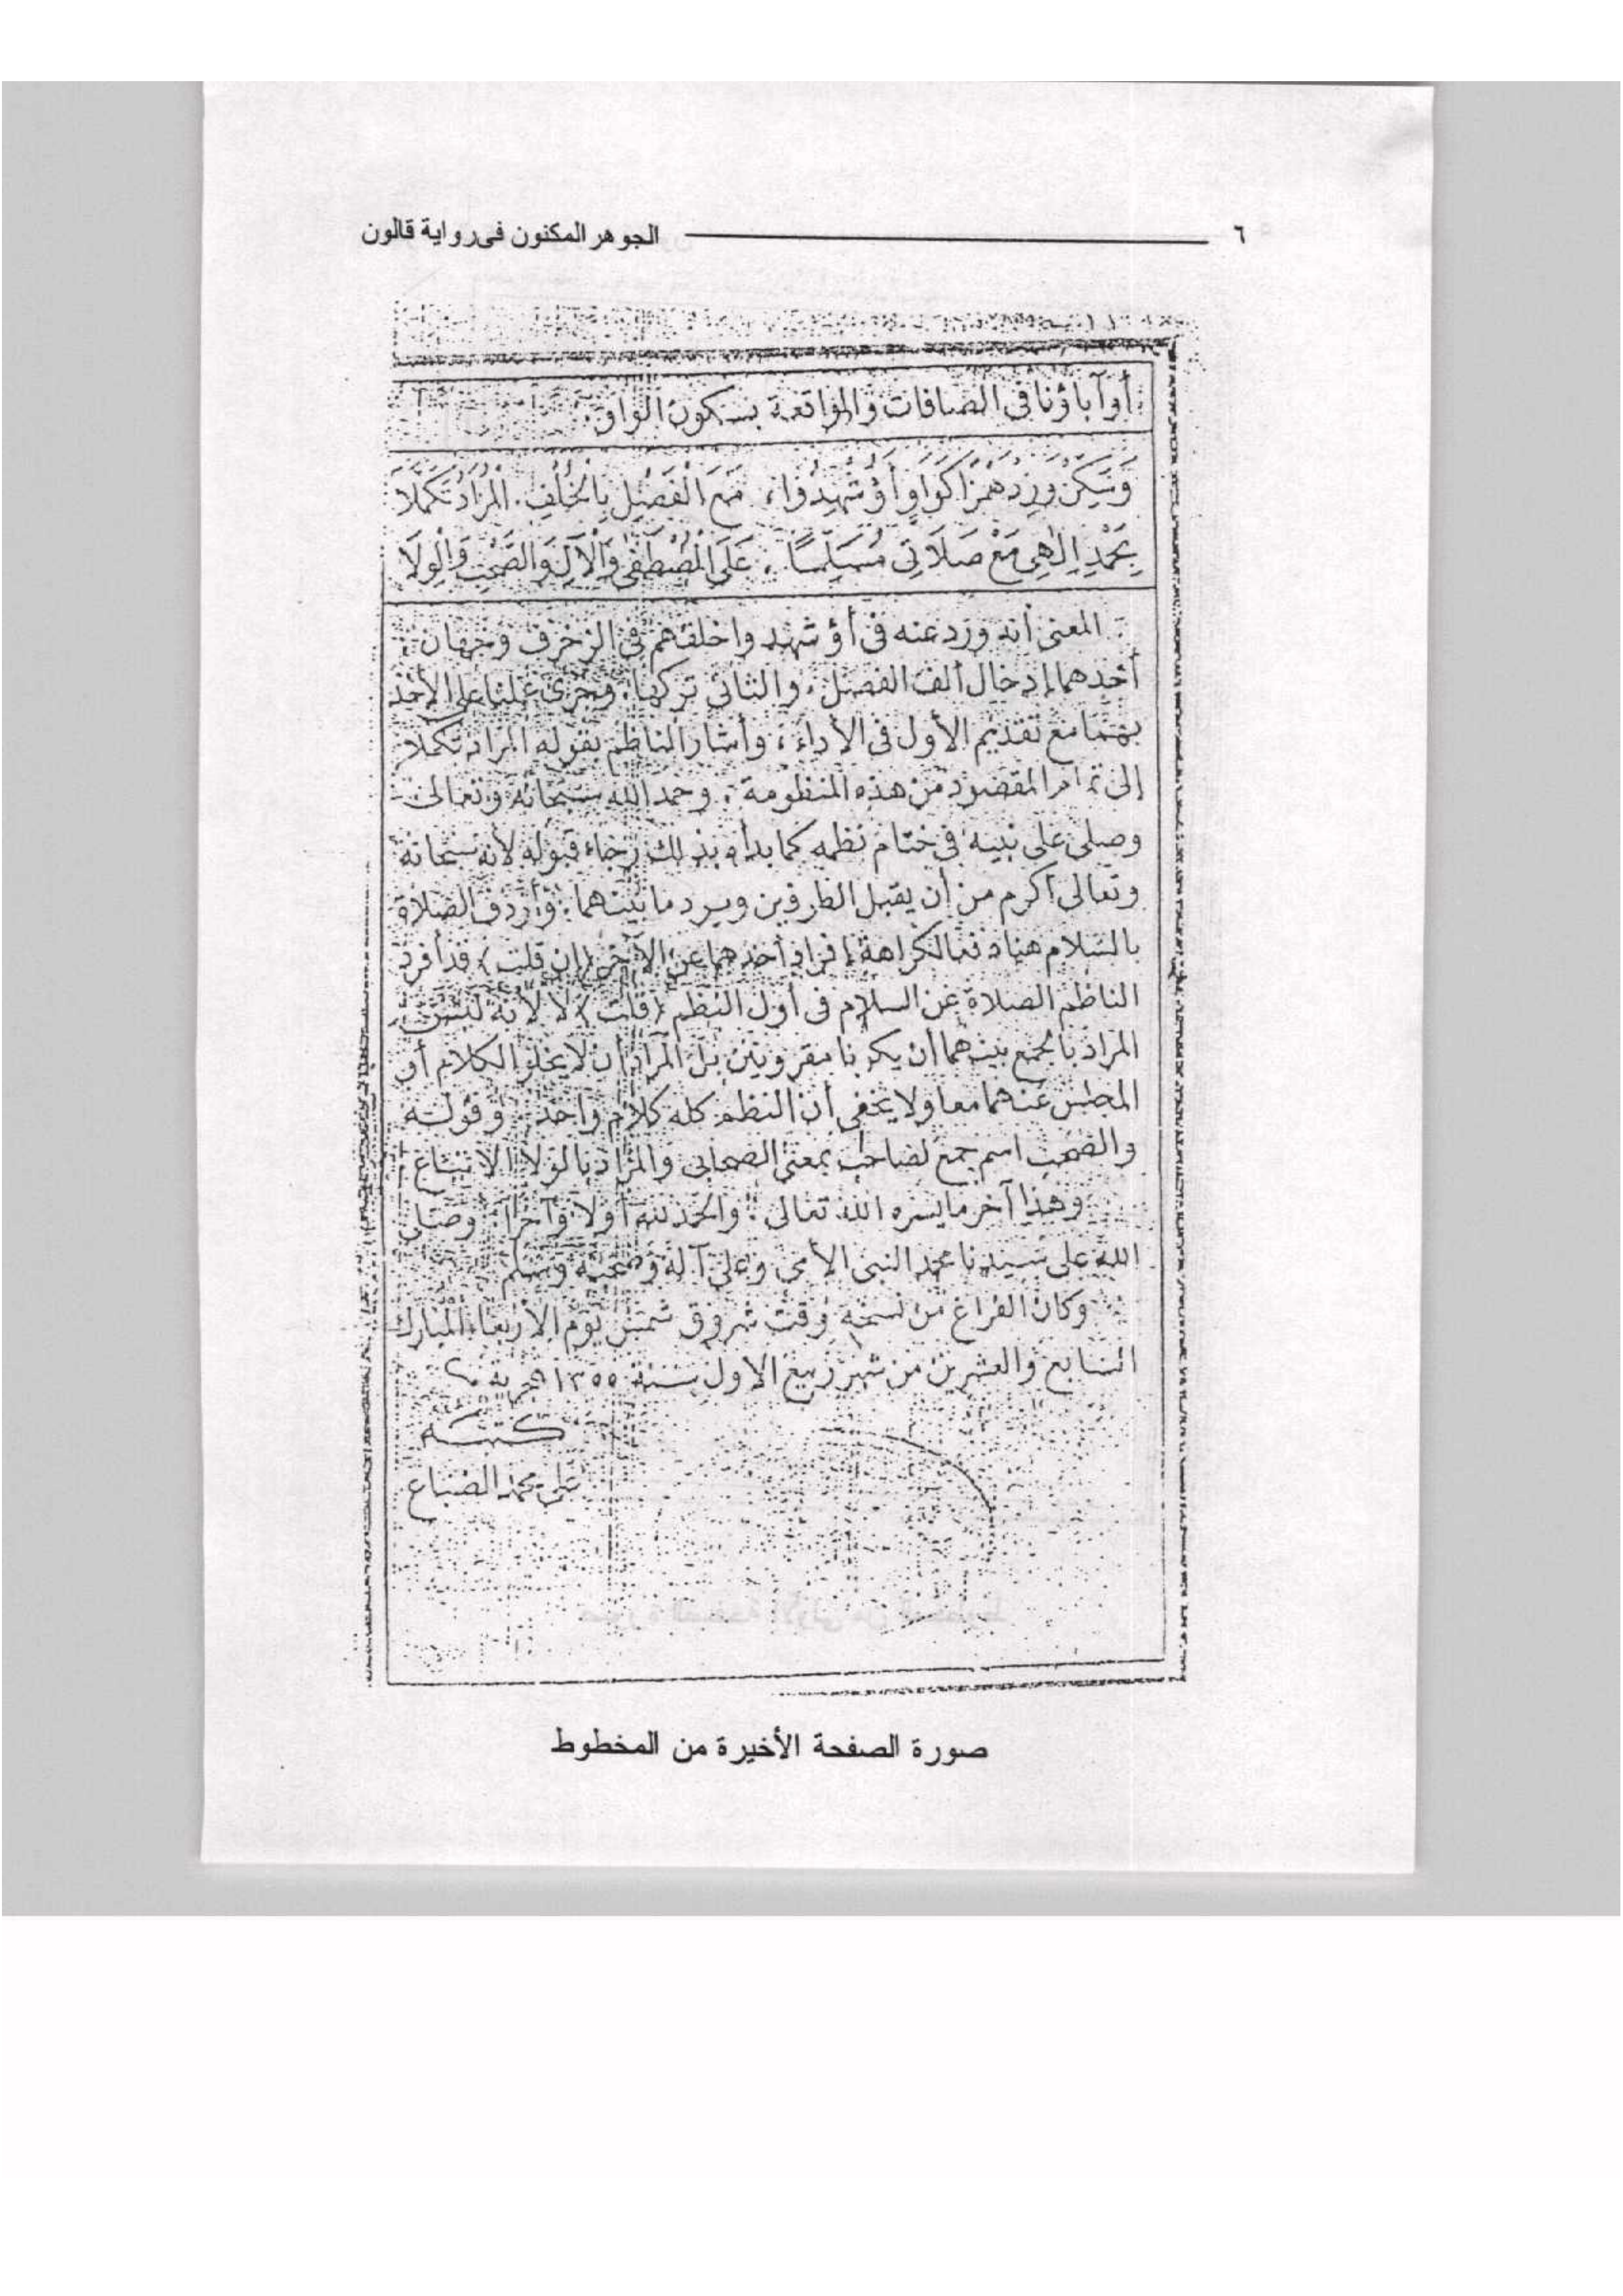 ٦ الجوهر المكنون فى رواية قالون
أوآباؤنا فى الصافات والواقعة بسكون الواو.
وَسَكِّنْ وَزِدْ هَمْزًا كَوَاوٍ أَؤُشْهِدُوا، مَعَ الْفَصْلِ بِالْخُلْفِ. الْمُرَادُ تَكَمَّلَا
بِحَمْدِ إِلٰهِى مَعْ صَلَاتِى مُسَلِّمًا. عَلَى الْمُصْطَفَى وَالْآلِ وَالصَّحْبِ وَالْوِلَا
المعنى أنه ورد عنه فى أؤشهدوا خلقهم فى الزخرف وجهان:
أحدهما إدخال ألف الفصل. والثانى تركها. وجرى عملنا على الأخذ
بهما مع تقديم الأول فى الأداء، وأشار الناظم بقوله المراد تكملا
إلى تمام المقصود من هذه المنظومة. وحمد الله سبحانه وتعالى
وصلى على نبيه فى ختام نظمه كما بدأه بذلك رجاء قبوله لأنه سبحانه
وتعالى أكرم من أن يقبل الطرفين ويرد ما بينهما. وأردف الصلاة
بالسلام هنا دفعا لكراهة إفراد أحدهما عن الآخر (إن قلت) قد أفرد
الناظم الصلاة عن السلام فى أول النظم (قلت) لا لأنه ليس
المراد بالجمع بينهما أن يكونا مقرونين بل المراد أن لا يخلو الكلام أو
المجلس عنهما معا ولا يخفى أن النظم كله كلام واحد. وقوله
والصحب اسم جمع لصاحب بمعنى الصحابى والمراد بالولا الاتباع
وهذا آخر ما يسره الله تعالى. والحمد لله أولا وآخرا. وصلى
الله على سيدنا محمد النبى الأمى وعلى آله وصحبه وسلم
وكان الفراغ من نسخه وقت شروق شمس يوم الاربعاء المبارك
السابع والعشرين من شهر ربيع الاول سنة ١٣٥٥ هجرية
كتبه
على محمد الضباع
صورة الصفحة الأخيرة من المخطوط